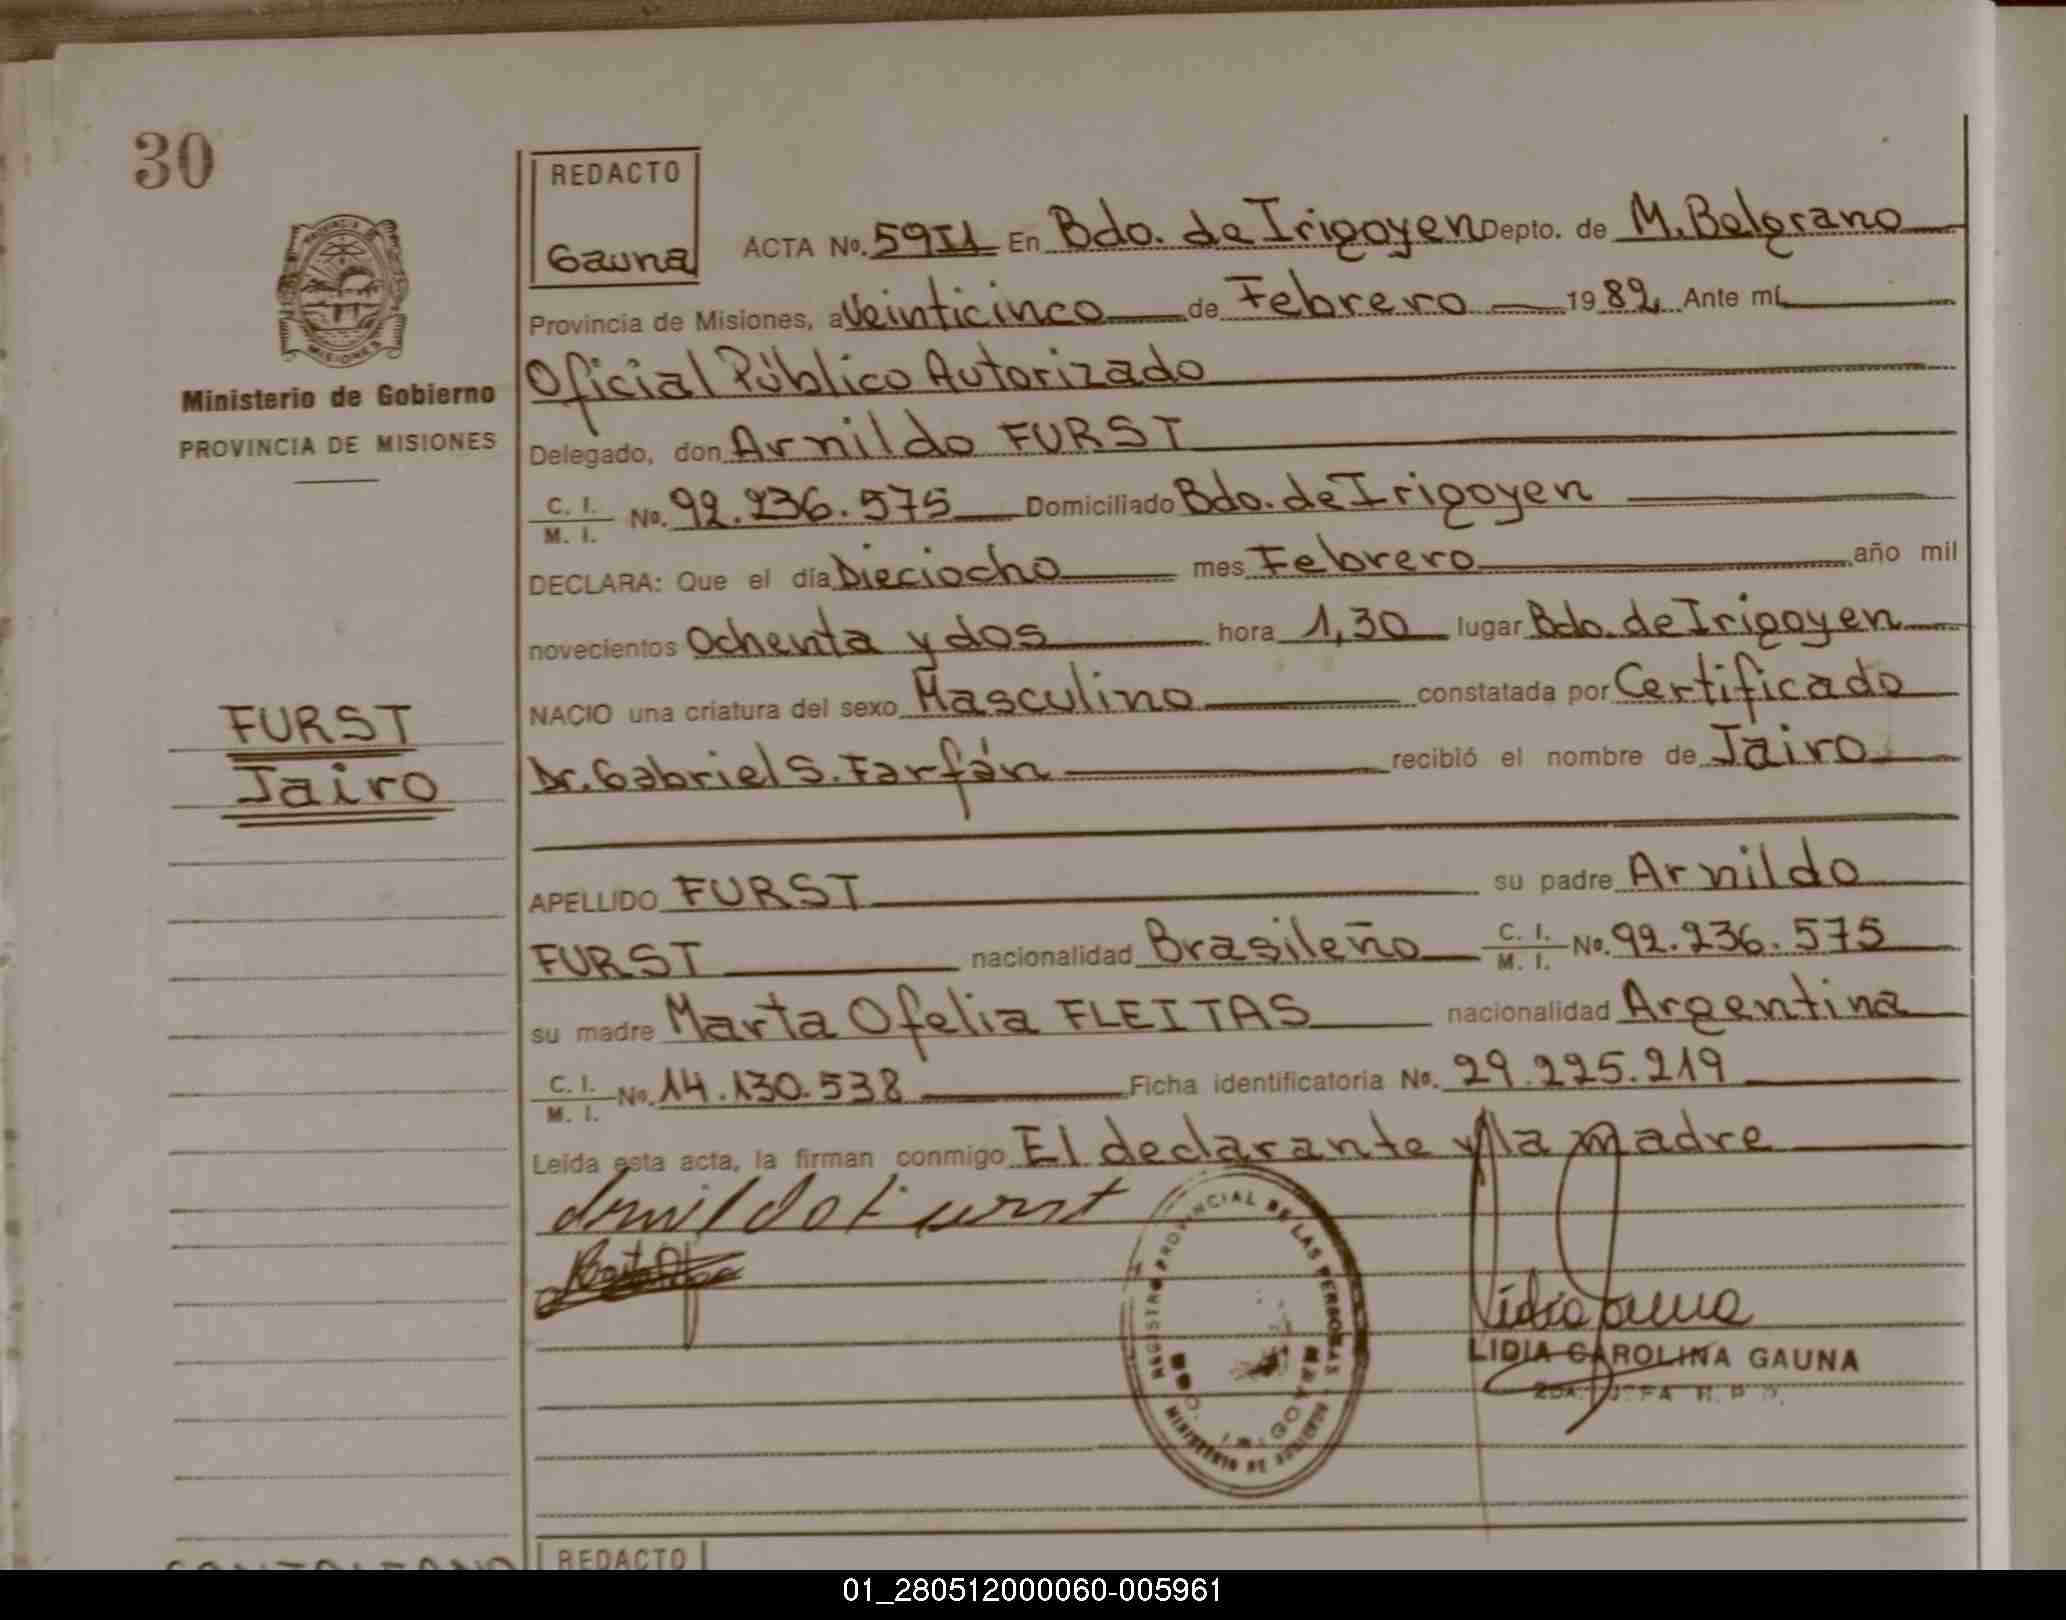 30
REDACTO
Gauna
ACTA No. 59 II En Bdo. de Irigoyen Depto. de M. Belgrano
Provincia de Misiones, a Veinticinco de Febrero 1982 Ante mí
Oficial Público Autorizado
Delegado, don Arnildo FURST
C. I. / M. I. No. 92.236.575 Domiciliado Bdo. de Irigoyen
DECLARA: Que el día Dieciocho mes Febrero año mil
novecientos Ochenta y dos hora 1,30 lugar Bdo. de Irigoyen
NACIO una criatura del sexo Masculino constatada por Certificado
Dr. Gabriel S. Farfán recibió el nombre de Jairo
APELLIDO FURST su padre Arnildo
FURST nacionalidad Brasileño C. I. / M. I. No. 92.236.575
su madre Marta Ofelia FLEITAS nacionalidad Argentina
C. I. / M. I. No. 14.130.538 Ficha identificatoria No. 29.225.219
Leída esta acta, la firman conmigo El declarante y la madre
Arnildo Furst
REGISTRO PROVINCIAL DE LAS PERSONAS
MINISTERIO DE GOBIERNO
Lidia Gauna
LIDIA CAROLINA GAUNA
PROVINCIA DE
MISIONES
Ministerio de Gobierno
PROVINCIA DE MISIONES
FURST
Jairo
REDACTO
01_280512000060-005961